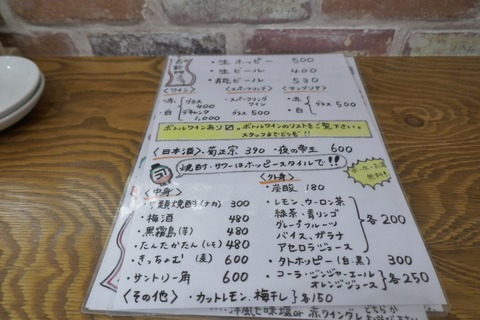 ・生ホッピー 500
・生ビール 400
・瓶ビール 530
〈ワイン〉 〈スパークリング〉
・赤 ・白 グラス 400 デキャンタ 1,000
・スパークリングワイン グラス 500
・赤 ・白 グラス 500
ボトルワインあり☑ ・ボトルワインのリストをご覧下さい。
スタッフまでどうぞ!!
〈日本酒〉・菊正宗 390 ・夜の帝王 600
焼酎・サワーはホッピースタイルで!!
〈中身〉 〈外身〉
・甲類焼酎(ナカ) 300
・梅酒 480
・黒霧島(芋) 480
・たんたかたん(しそ) 480
・きっちょむ(麦) 600
・サントリー角 600
・炭酸 180
・レモン、ウーロン茶
緑茶・青リンゴ
グレープフルーツ
バイス、ガラナ
アセロラジュース 各200
・タトホッピー(白・黒) 300
・コーラ・ジンジャーエール
オレンジジュース 各250
〈その他〉 ・カットレモン、梅干し 各150